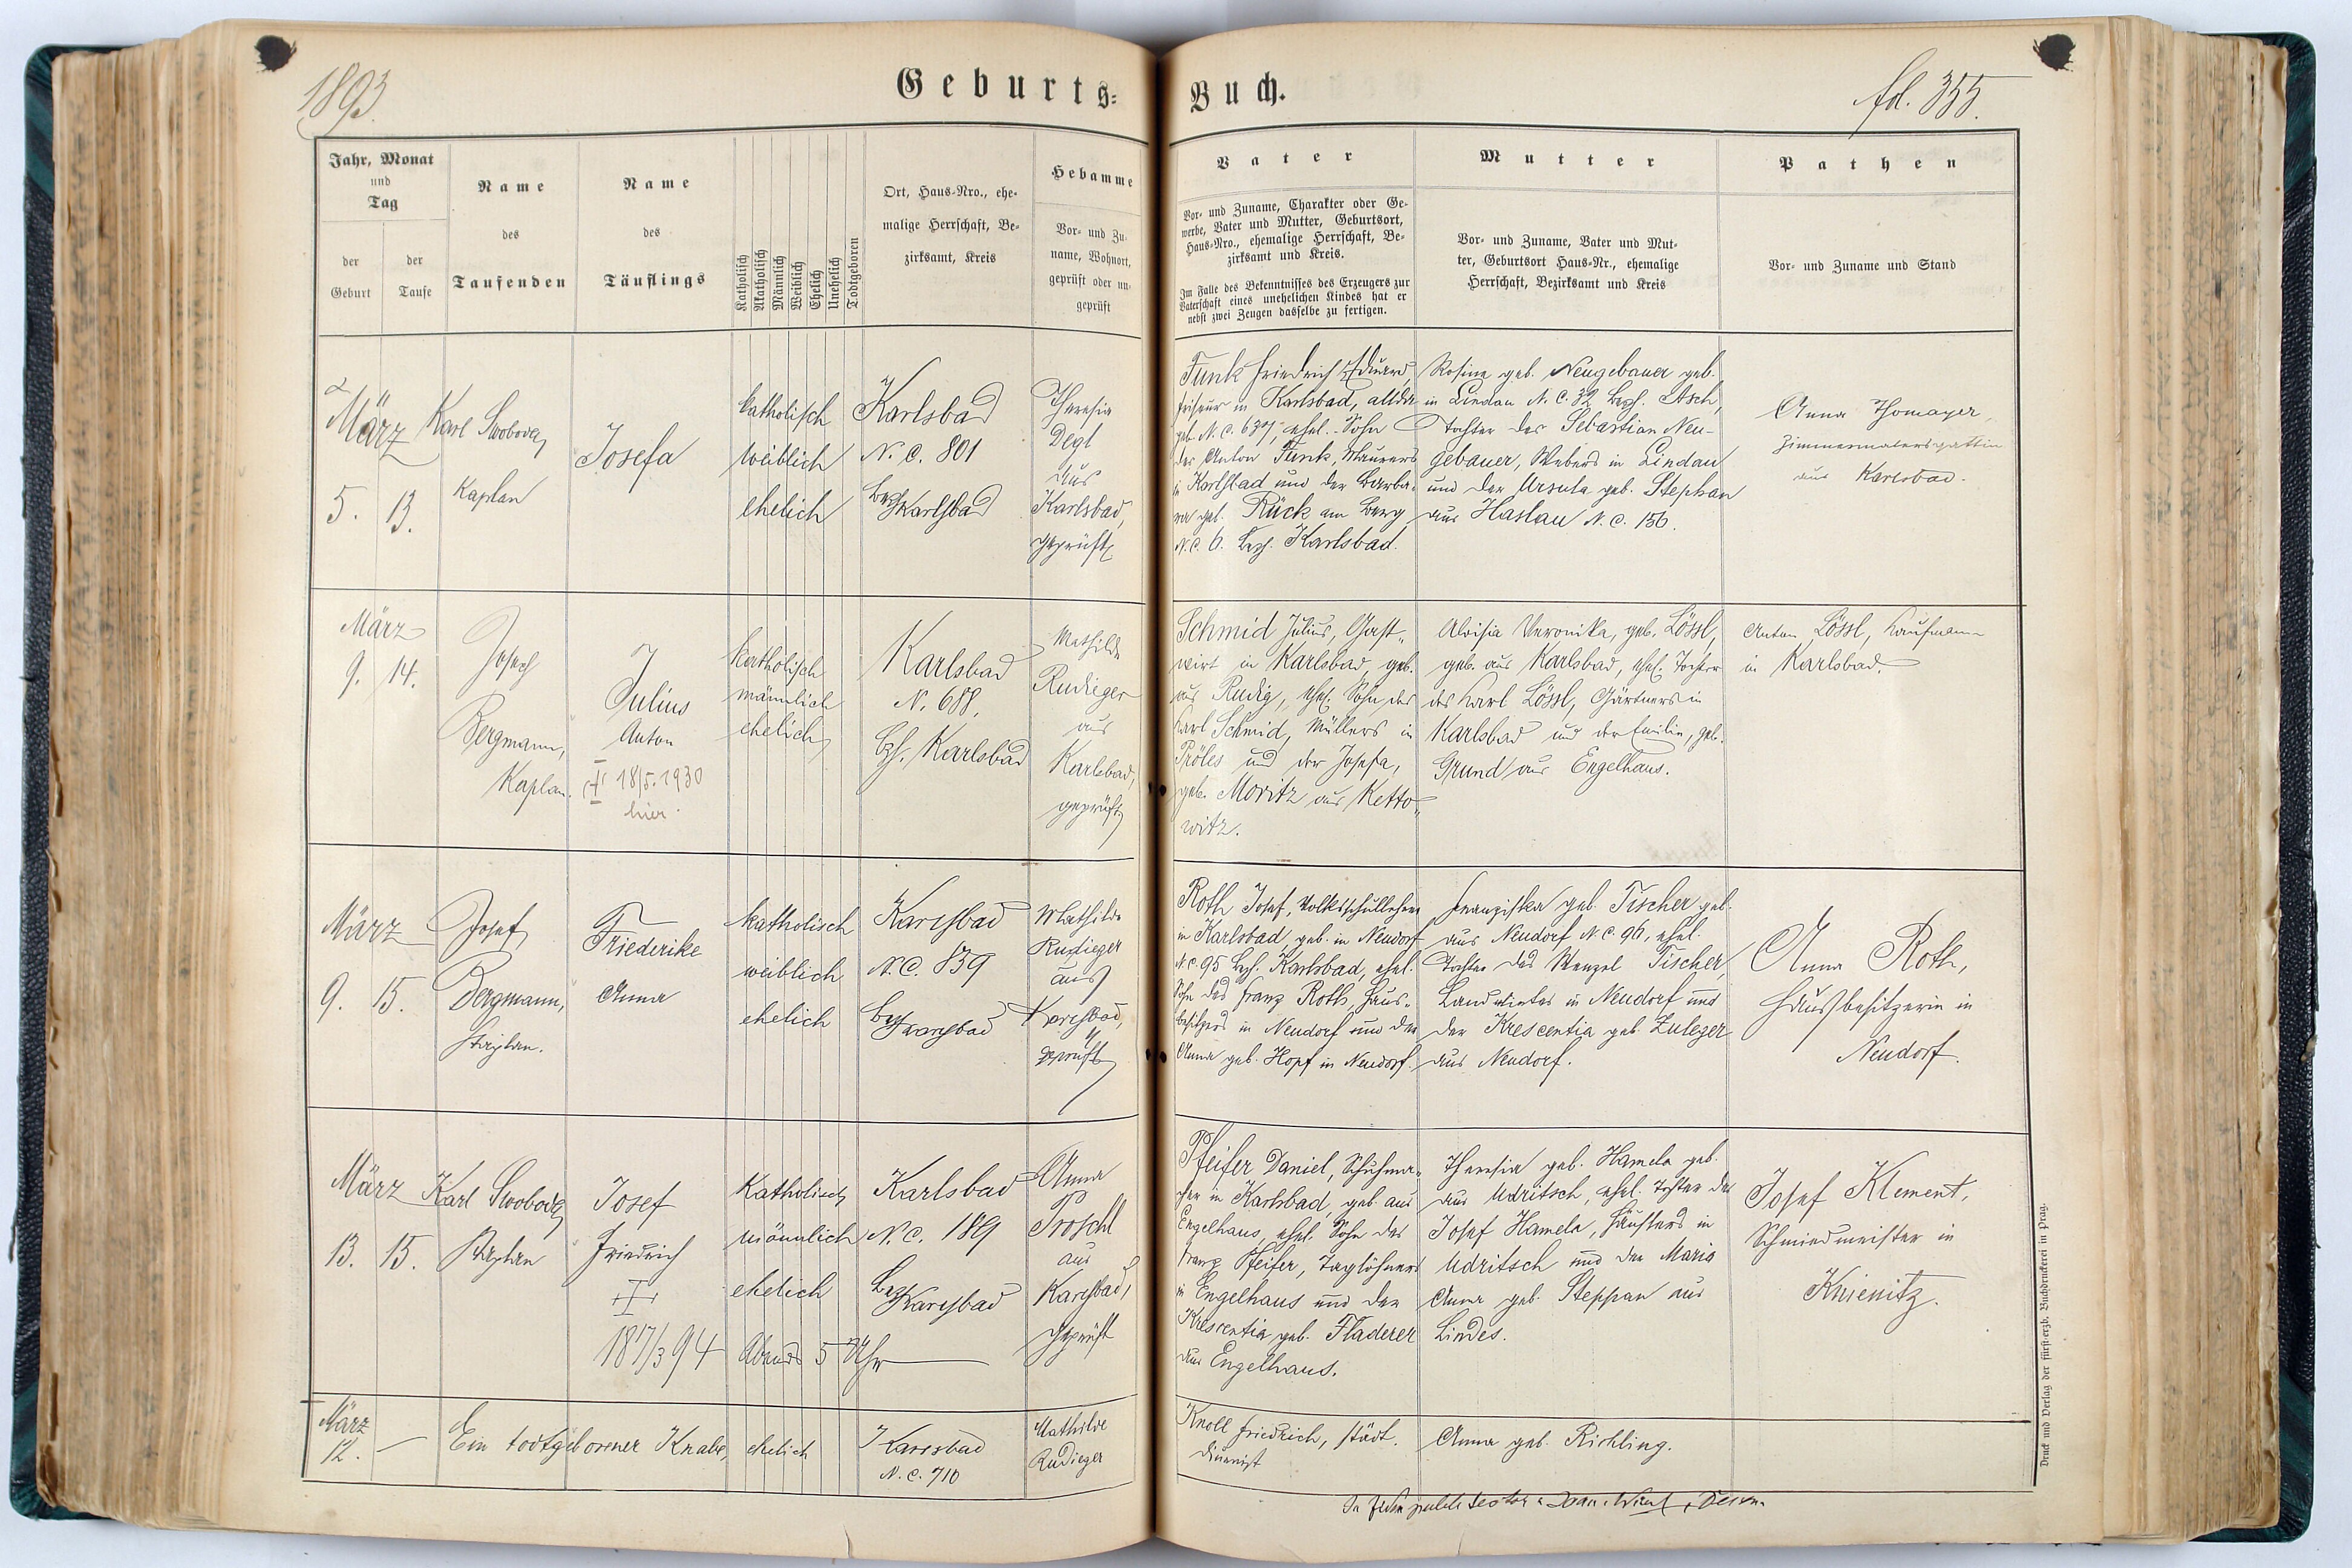 1893.
Geburts-
Buch.
fol. 355.
Jahr, Monat
und
Tag
der
Geburt
der
Taufe
Name
des
Taufenden
Name
des
Täuflings
Katholisch
Akatholisch
Männlich
Weiblich
Ehelich
Unehelich
Todtgeboren
Ort, Haus-Nro., ehe-
malige Herrschaft, Be-
zirksamt, Kreis
Hebamme
Vor- und Zu-
name, Wohnort,
geprüft oder un-
geprüft
Vater
Vor- und Zuname, Charakter oder Ge-
werbe, Vater und Mutter, Geburtsort,
Haus-Nro., ehemalige Herrschaft, Be-
zirksamt und Kreis.
Im Falle des Bekenntnisses des Erzeugers zur
Vaterschaft eines unehelichen Kindes hat er
nebst zwei Zeugen dasselbe zu fertigen.
Mutter
Vor- und Zuname, Vater und Mut-
ter, Geburtsort Haus-Nr., ehemalige
Herrschaft, Bezirksamt und Kreis
Pathen
Vor- und Zuname und Stand
März
5. 13.
Karl Swoboda
Kaplan
Josefa
katholisch
weiblich
ehelich
Karlsbad
N. C. 801
Bzh Karlsbad
Theresia
Degl
aus
Karlsbad,
geprüft
Funk Friedrich Eduard,
Friseur in Karlsbad, allda
geb. N. C. 637, ehel. Sohn
des Anton Funk, Maurers
in Karlsbad und der Barba-
ra geb. Rück am Berg
N. C. 6. Bzh. Karlsbad.
Rosina geb. Neugebauer geb.
in Lindau N. C. 32 Bzh. Asch,
Tochter des Sebastian Neu-
gebauer, Webers in Lindau
und der Ursula geb. Stephan
aus Haslau N. C. 156.
Anna Thomayer,
Zimmermalersgattin
aus Karlsbad.
März
9. 14.
Josef
Bergmann,
Kaplan.
Julius
Anton
† 18/5. 1930
hier.
katholisch
männlich
ehelich
Karlsbad
N. 688.
Bzh. Karlsbad
Mathilde
Rudieger
aus
Karlsbad,
geprüft
Schmid Julius, Gast-
wirt in Karlsbad, geb.
aus Rudig, ehel. Sohn des
Karl Schmid, Müllers in
Pröles und der Josefa,
geb. Moritz aus Ketto-
witz.
Aloisia Veronika, geb. Lössl,
geb. aus Karlsbad, ehel. Tochter
des Karl Lössl, Gärtners in
Karlsbad und der Emilie, geb.
Grund aus Engelhaus.
Anton Lössl, Kaufmann
in Karlsbad.
März
9. 15.
Josef
Bergmann,
Kaplan.
Friederike
Anna
katholisch
weiblich
ehelich
Karlsbad
N. C. 839
Bzh Karlsbad
Mathilde
Rudieger
aus
Karlsbad,
geprüft
Roth Josef, Volksschullehrer
in Karlsbad, geb. in Neudorf
N. C. 95 Bzh. Karlsbad, ehel.
Sohn des Franz Roth, Haus-
besitzers in Neudorf und der
Anna geb. Hopf in Neudorf.
Franziska geb. Tischer geb.
aus Neudorf N. C. 96, ehel.
Tochter des Wenzel Tischer,
Landwirtes in Neudorf und
der Krescentia geb. Zuleger
aus Neudorf.
Anna Roth,
Hausbesitzerin in
Neudorf.
März
13. 15.
Karl Swoboda
Kaplan
Josef
Friedrich
†
18 17/3 94
katholisch
männlich
ehelich
Abends 5 Uhr
Karlsbad
N. C. 189
Bzh Karlsbad
Anna
Proschl
aus
Karlsbad,
geprüft
Pfeifer Daniel, Schuhma-
cher in Karlsbad, geb. aus
Engelhaus, ehel. Sohn des
Franz Pfeifer, Taglöhners
in Engelhaus und der
Krescentia geb. Fladerer
aus Engelhaus.
Theresia geb. Hamela geb.
aus Udritsch, ehel. Tochter des
Josef Hamela, Häuslers in
Udritsch und der Maria
Anna geb. Steppan aus
Lindes.
Josef Klement,
Schmiedmeister in
Knienitz.
März
12. —
Ein todtgeborener Knabe, ehelich
Karlsbad
N. C. 710
Mathilde
Rudieger
Knoll Friedrich, städt.
Diurnist
Anna geb. Richling.
Druck und Verlag der fürst-erzb. Buchdruckerei in Prag.